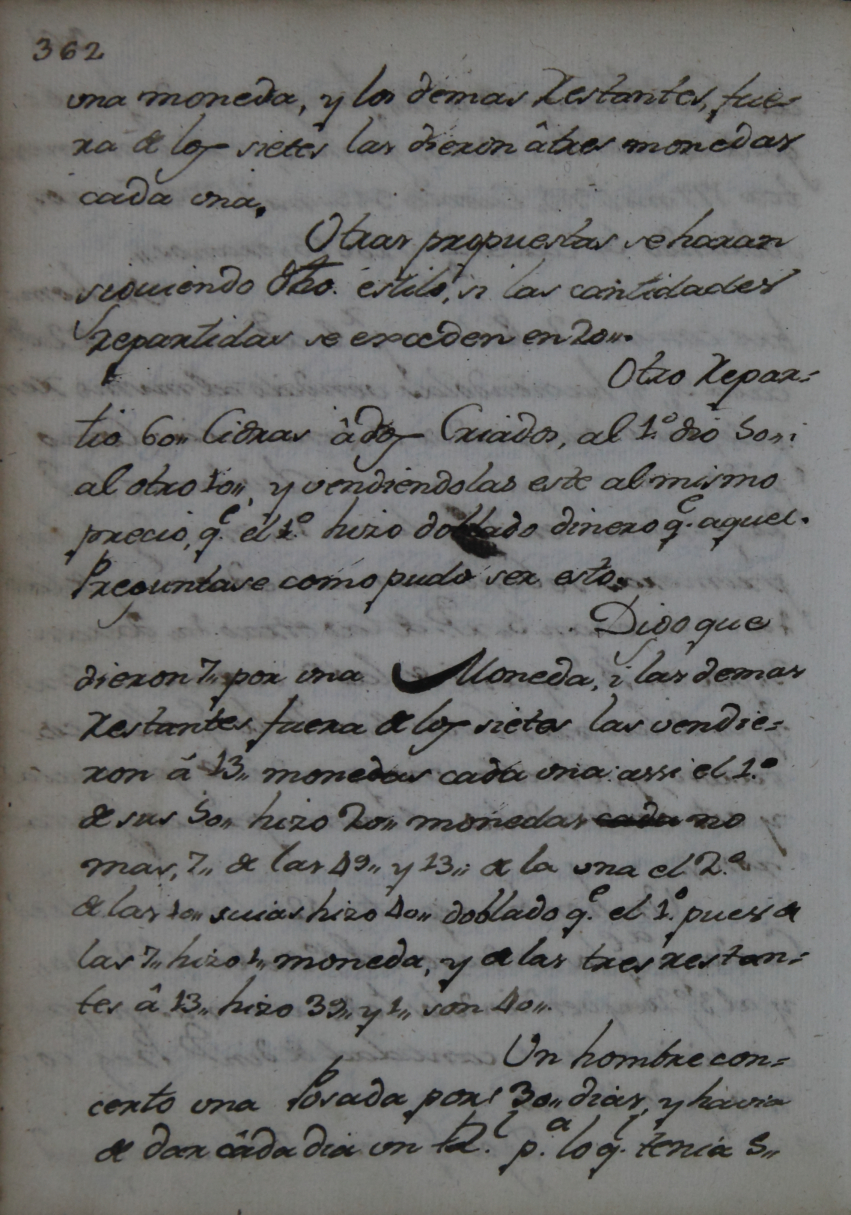 362
una moneda, y los demas Restantes, fue-
ra de los sietes las dieron â tres monedas
cada una.
Otras propuestas se haran
siguiendo dho. estilo, si las cantidades
Repartidas se exceden en 20„.
Otro Repar=
tio 60„ Cidras â dos Criados, al 1.º dio 50„:
al otro 10„, y vendiendolas este al mismo
precio, q.e el 1.º hizo doblado dinero q.e aquel.
Preguntase como pudo ser esto.
Digo que
dieron 7„ por una Moneda, i las demas
Restantes fuera de los sietes las vendie=
ron á 13„ monedas cada una: assi el 1.º
de sus 50„ hizo 20„ monedas cada no
mas, 7„ de las 49„ y 13„ de la una el 2.º
de las 10„ suias hizo 40„ doblado q.e el 1.º pues de
las 7„ hizo 1„ moneda, y de las tres restan=
tes â 13„ hizo 39„ y 1„ son 40„.
Un hombre con=
certo una Posada por 30„ dias, y havia
de dar câda dia un R.l p.a lo q.l tenia 5„